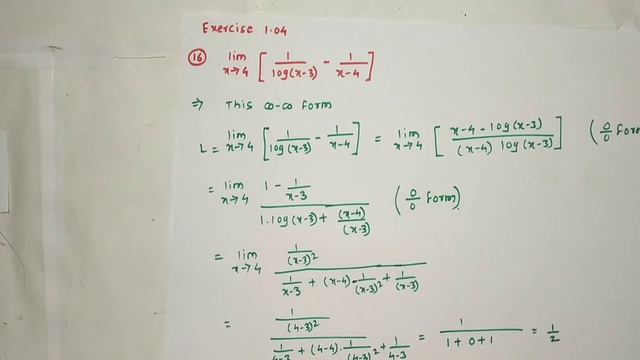 Exercise 1.04
(16) lim x→4 [ 1/log(x-3) - 1/(x-4) ]
⇒ This ∞-∞ form
L = lim x→4 [ 1/log(x-3) - 1/(x-4) ] = lim x→4 [ (x-4-log(x-3)) / ((x-4) log(x-3)) ] (0/0 form
= lim x→4 (1 - 1/(x-3)) / (1.log(x-3) + (x-4)/(x-3)) (0/0 form).
= lim x→4 (1/(x-3)²) / (1/(x-3) + (x-4)-1/(x-3)² + 1/(x-3))
= (1/(4-3)²) / (1/(4-3) + (4-4).1/(4-3)² + 1/(4-3)) = 1/(1+0+1) = 1/2